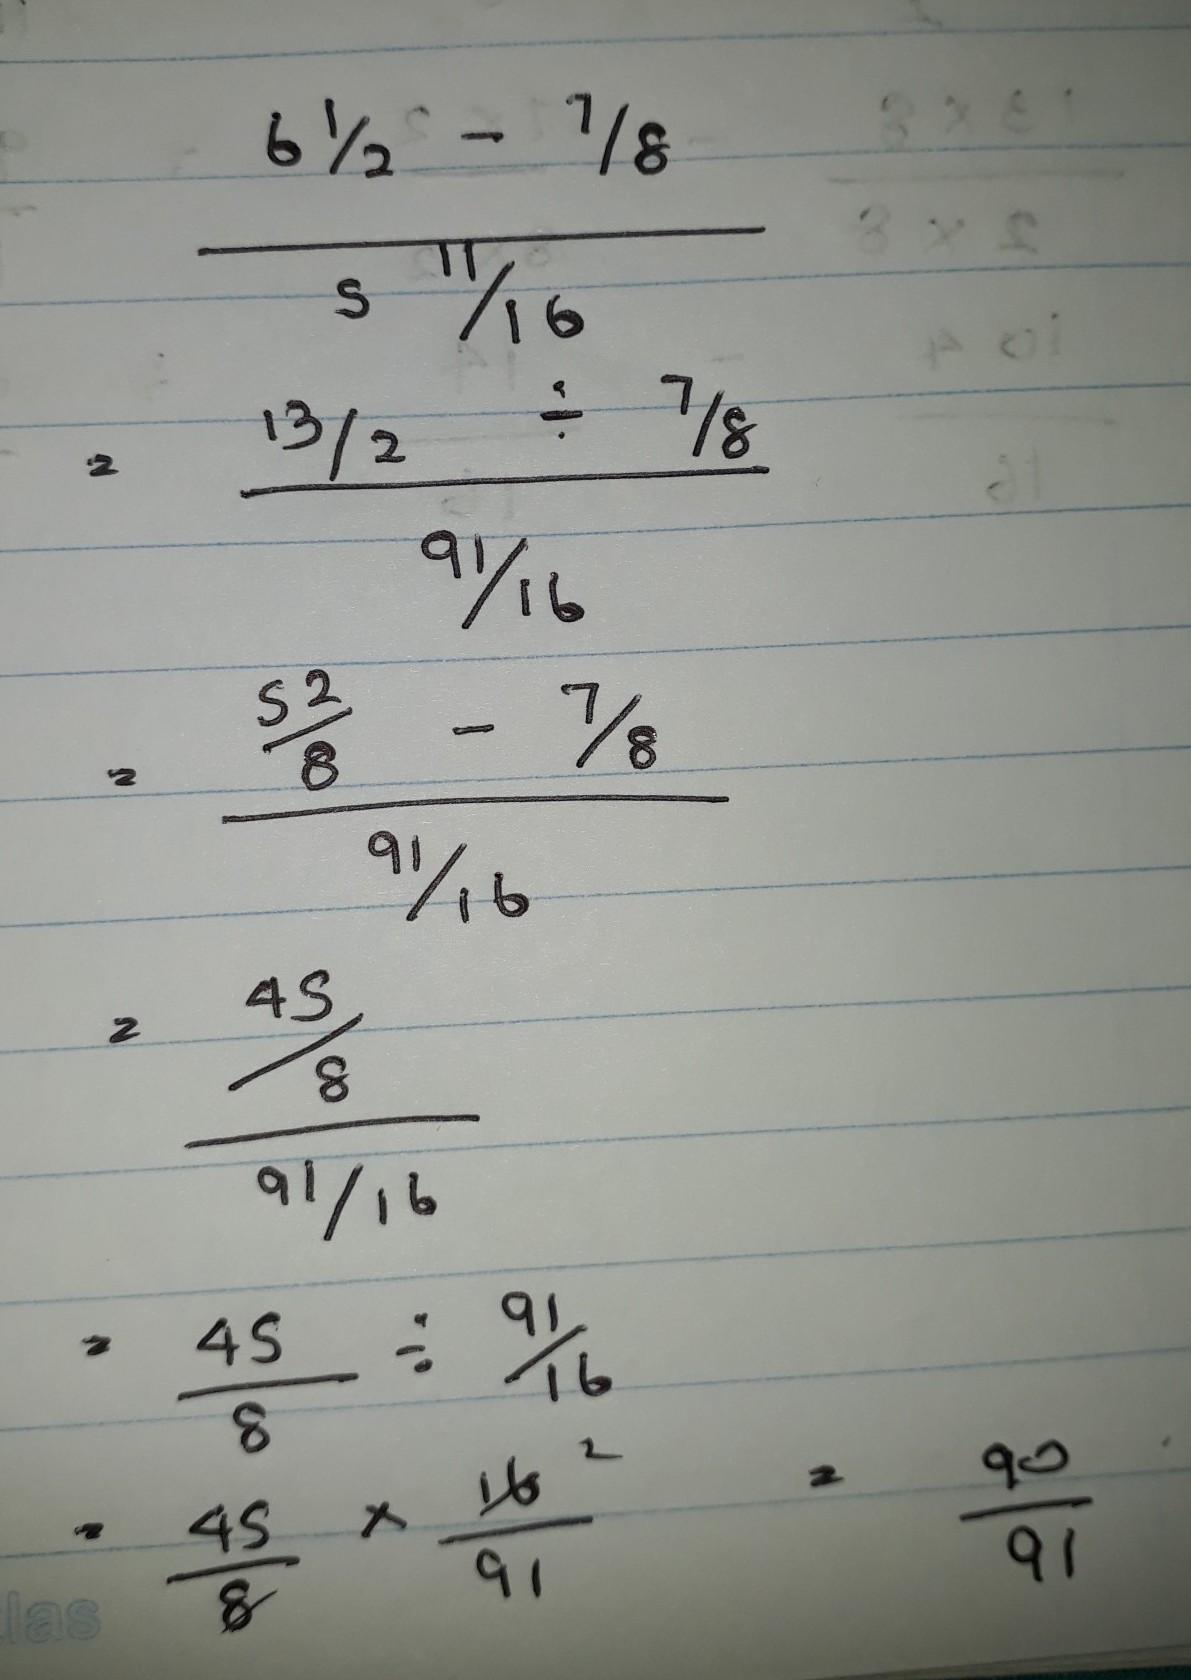 6 1/2 - 7/8
5 11/16
= 13/2 ÷ 7/8
91/16
= 52/8 - 7/8
91/16
= 45/8
91/16
= 45/8 ÷ 91/16
= 45/8 × 16 2/91 = 90/91
las